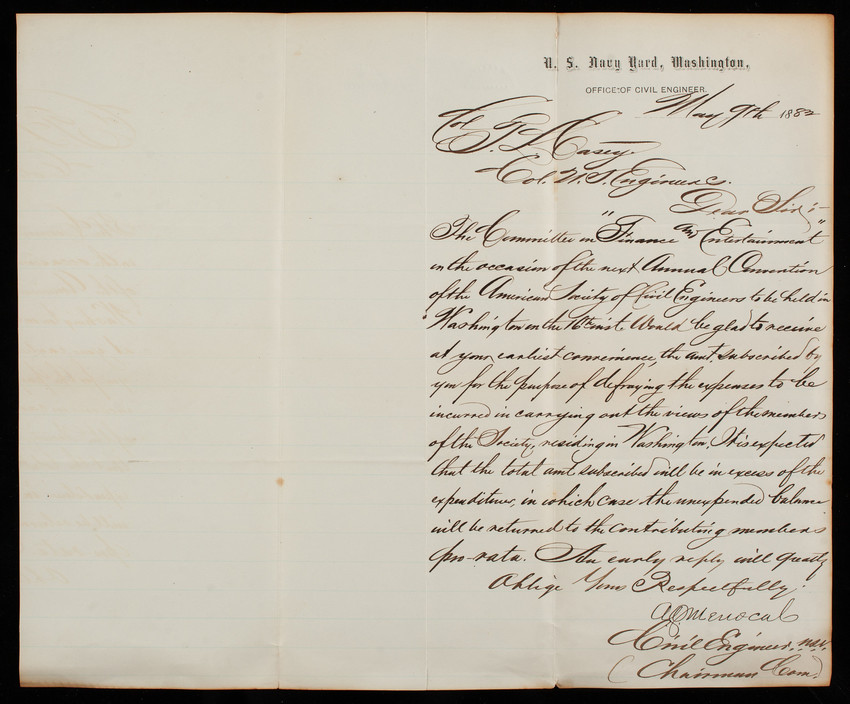 U. S. Navy Yard, Washington,
OFFICE OF CIVIL ENGINEER.
May 9th 1882
Col. T. L. Casey
Col. U. S. Engineers.
Dear Sir:-
The Committee on "Finance and Entertainment"
on the occasion of the next Annual Convention
of the American Society of Civil Engineers to be held in
Washington on the 16th inst. would be glad to receive
at your earliest convenience, the amt. subscribed by
you for the purpose of defraying the expenses to be
incurred in carrying out the views of the members
of the Society, residing in Washington. It is expected
that the total amt subscribed will be in excess of the
expenditures, in which case the unexpended balance
will be returned to the contributing members
pro-rata. An early reply will greatly
Oblige Yours Respectfully.
A G Menocal
Civil Engineer, U.S.N.
(Chairman Com.)